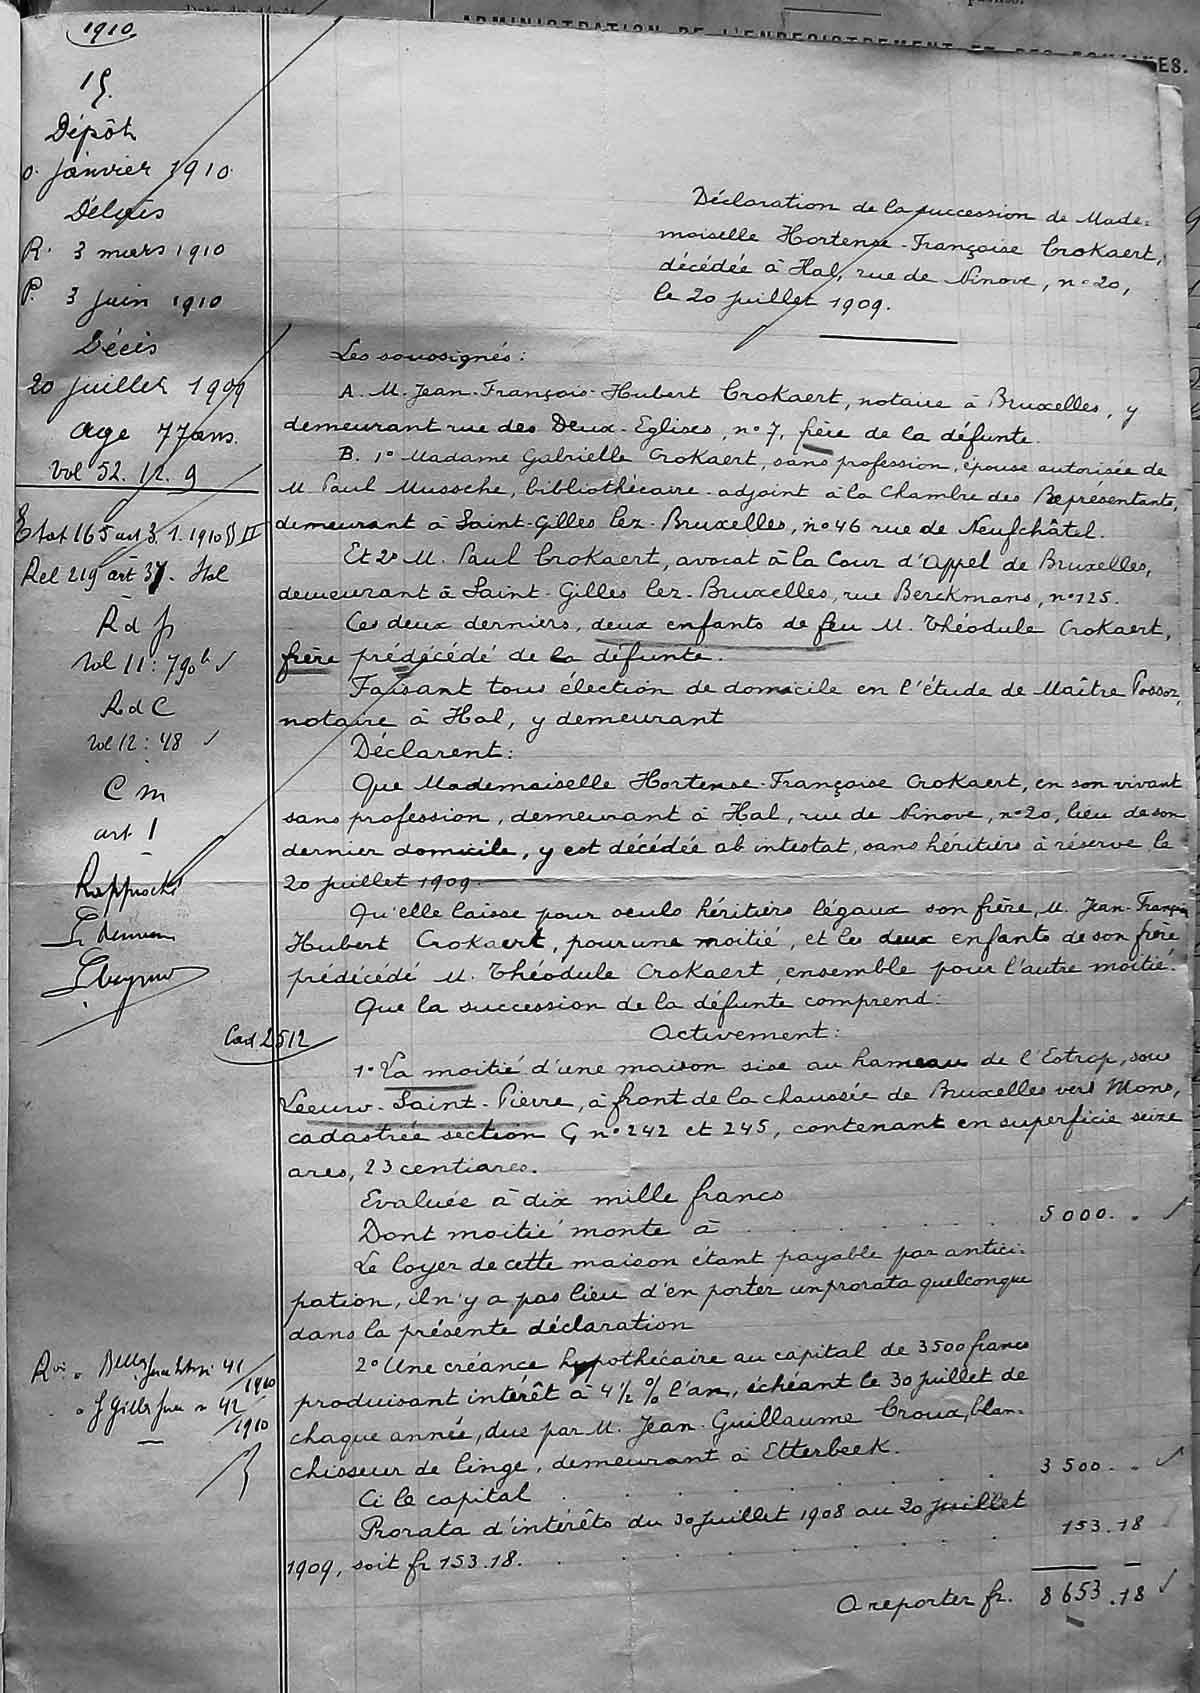 ADMINISTRATION DE L'ENREGISTREMENT ET DES DOMAINES.
1910
15.
Dépôt
0. janvier 1910.
Délais
R. 3 mars 1910
P. 3 juin 1910
Décès
20 juillet 1909
age 77 ans.
Vol 52. 12. 9
Etat 165 art 3. 1. 1910 § II
Rel 219 art 37. Hal
R d p
Vol 11: 790 ✓
R d C
vol 12: 48 ✓
C m
art 1
Cad. 2512
41/1910
42/1910
Déclaration de la succession de Made-
moiselle Hortense-Françoise Crokaert,
décédée à Hal, rue de Ninove, n° 20,
le 20 juillet 1909.
Les soussignés:
A. M. Jean-François-Hubert Crokaert, notaire à Bruxelles, y
demeurant rue des Deux-Eglises, n° 7, frère de la défunte.
B. 1° Madame Gabrielle Crokaert, sans profession, épouse autorisée de
M. Paul Mussche, bibliothécaire-adjoint à la Chambre des Représentants,
demeurant à Saint-Gilles lez-Bruxelles, n° 46 rue de Neufchâtel.
Et 2° M. Paul Crokaert, avocat à la Cour d'Appel de Bruxelles,
demeurant à Saint-Gilles lez-Bruxelles, rue Berckmans, n° 125.
Ces deux derniers, deux enfants de feu M. Théodule Crokaert,
frère prédécédé de la défunte.
Faisant tous élection de domicile en l'étude de Maître Possoz,
notaire à Hal, y demeurant
Déclarent:
Que Mademoiselle Hortense-Françoise Crokaert, en son vivant
sans profession, demeurant à Hal, rue de Ninove, n° 20, lieu de son
dernier domicile, y est décédée ab intestat, sans héritiers à réserve, le
20 juillet 1909.
Qu'elle laisse pour seuls héritiers légaux son frère, M. Jean-François
Hubert Crokaert, pour une moitié, et les deux enfants de son frère
prédécédé M. Théodule Crokaert, ensemble pour l'autre moitié.
Que la succession de la défunte comprend:
Activement:
1° La moitié d'une maison sise au hameau de l'Estrop, sous
Leeuw-Saint-Pierre, à front de la chaussée de Bruxelles vers Mons,
cadastrée section G, n° 242 et 245, contenant en superficie seize
ares, 23 centiares.
Evaluée à dix mille francs
Dont moitié monte à . . . . . . . 5000. " ✓
Le loyer de cette maison étant payable par antici-
pation, il n'y a pas lieu d'en porter un prorata quelconque
dans la présente déclaration
2° Une créance hypothécaire au capital de 3500 francs
produisant intérêt à 4 1/2 % l'an, échéant le 30 juillet de
chaque année, due par M. Jean-Guillaume Croux, blan-
chisseur de linge, demeurant à Etterbeek.
Ci le capital . . . . . . . 3500. " ✓
Prorata d'intérêts du 30 juillet 1908 au 20 juillet
1909, soit fr 153.18. . . . . . . 153.18
A reporter fr. 8653.18 ✓